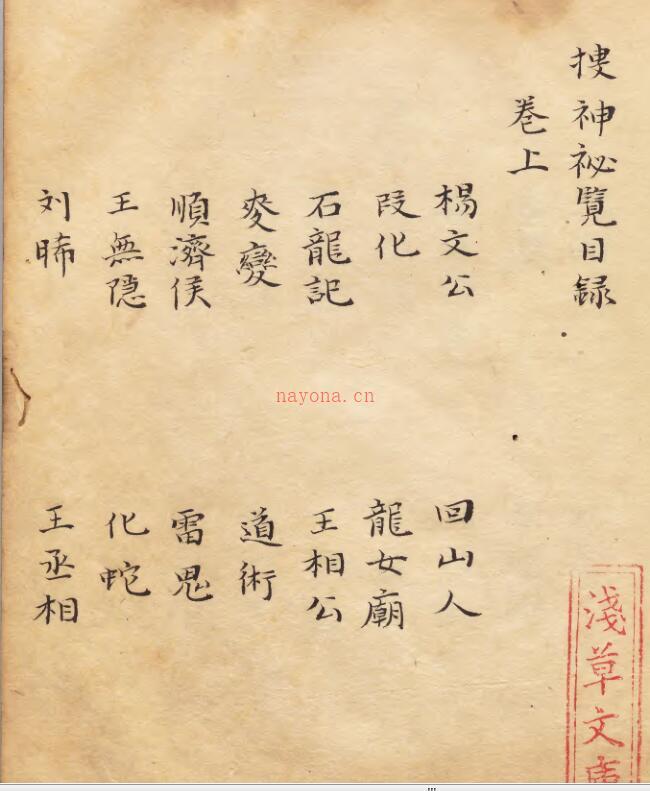 搜神祕覽目録
卷上
楊文公
回山人
段化
龍女廟
石龍記
王相公
麥變
道術
順濟侯
雷鬼
王無隠
化蛇
刘晞
王丞相
淺草文庫
nayona.cn